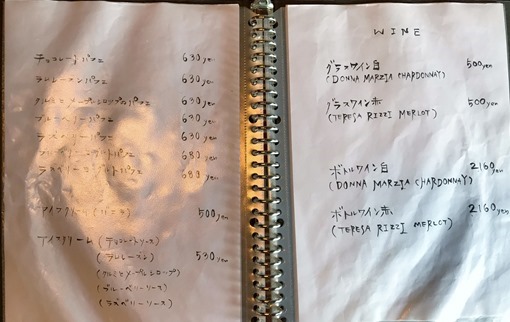 チョコレートパフェ 630yen
ラムレーズンパフェ 630yen
クルミとメープルシロップのパフェ 630yen
ブルーベリーパフェ 630yen
ラズベリーパフェ 630yen
ブルベリーヨーグルトパフェ 680yen
ラズベリーヨーグルトパフェ 680yen
アイスクリーム (バニラ) 500yen
アイスクリーム (チョコレートソース)
(ラムレーズン) 530yen
(クルミとメープルシロップ)
(ブルーベリーソース)
(ラズベリーソース)
WINE
グラスワイン白 500yen
(DONNA MARZIA CHARDONNAY)
グラスワイン赤 500yen
(TERESA RIZZI MERLOT)
ボトルワイン白 2160yen
(DONNA MARZIA CHARDONNAY)
ボトルワイン赤 2160yen
(TERESA RIZZI MERLOT)